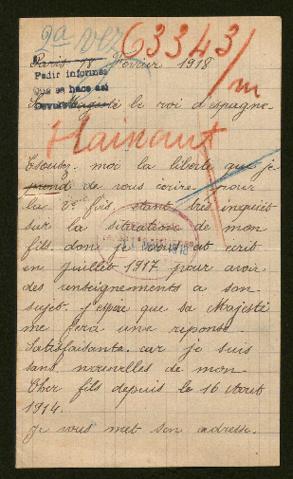 2a vez 63343/m
Paris 18 Février 1918
Pedir informes
que se hace así
Majesté le roi d'espagne
Hainaut
moi la liberté que je
prend de vous écrire pour
la 2e fois étant très inquiets
sur la situation de mon
fils dont
en juillet 1917 pour avoir
des renseignements a son
sujet. j'espère que sa Majesté
me fera une réponse
satisfaisante car je suis
sans nouvelles de mon
Cher fils depuis le 16 Aout
1914.
Je vous met son adresse.